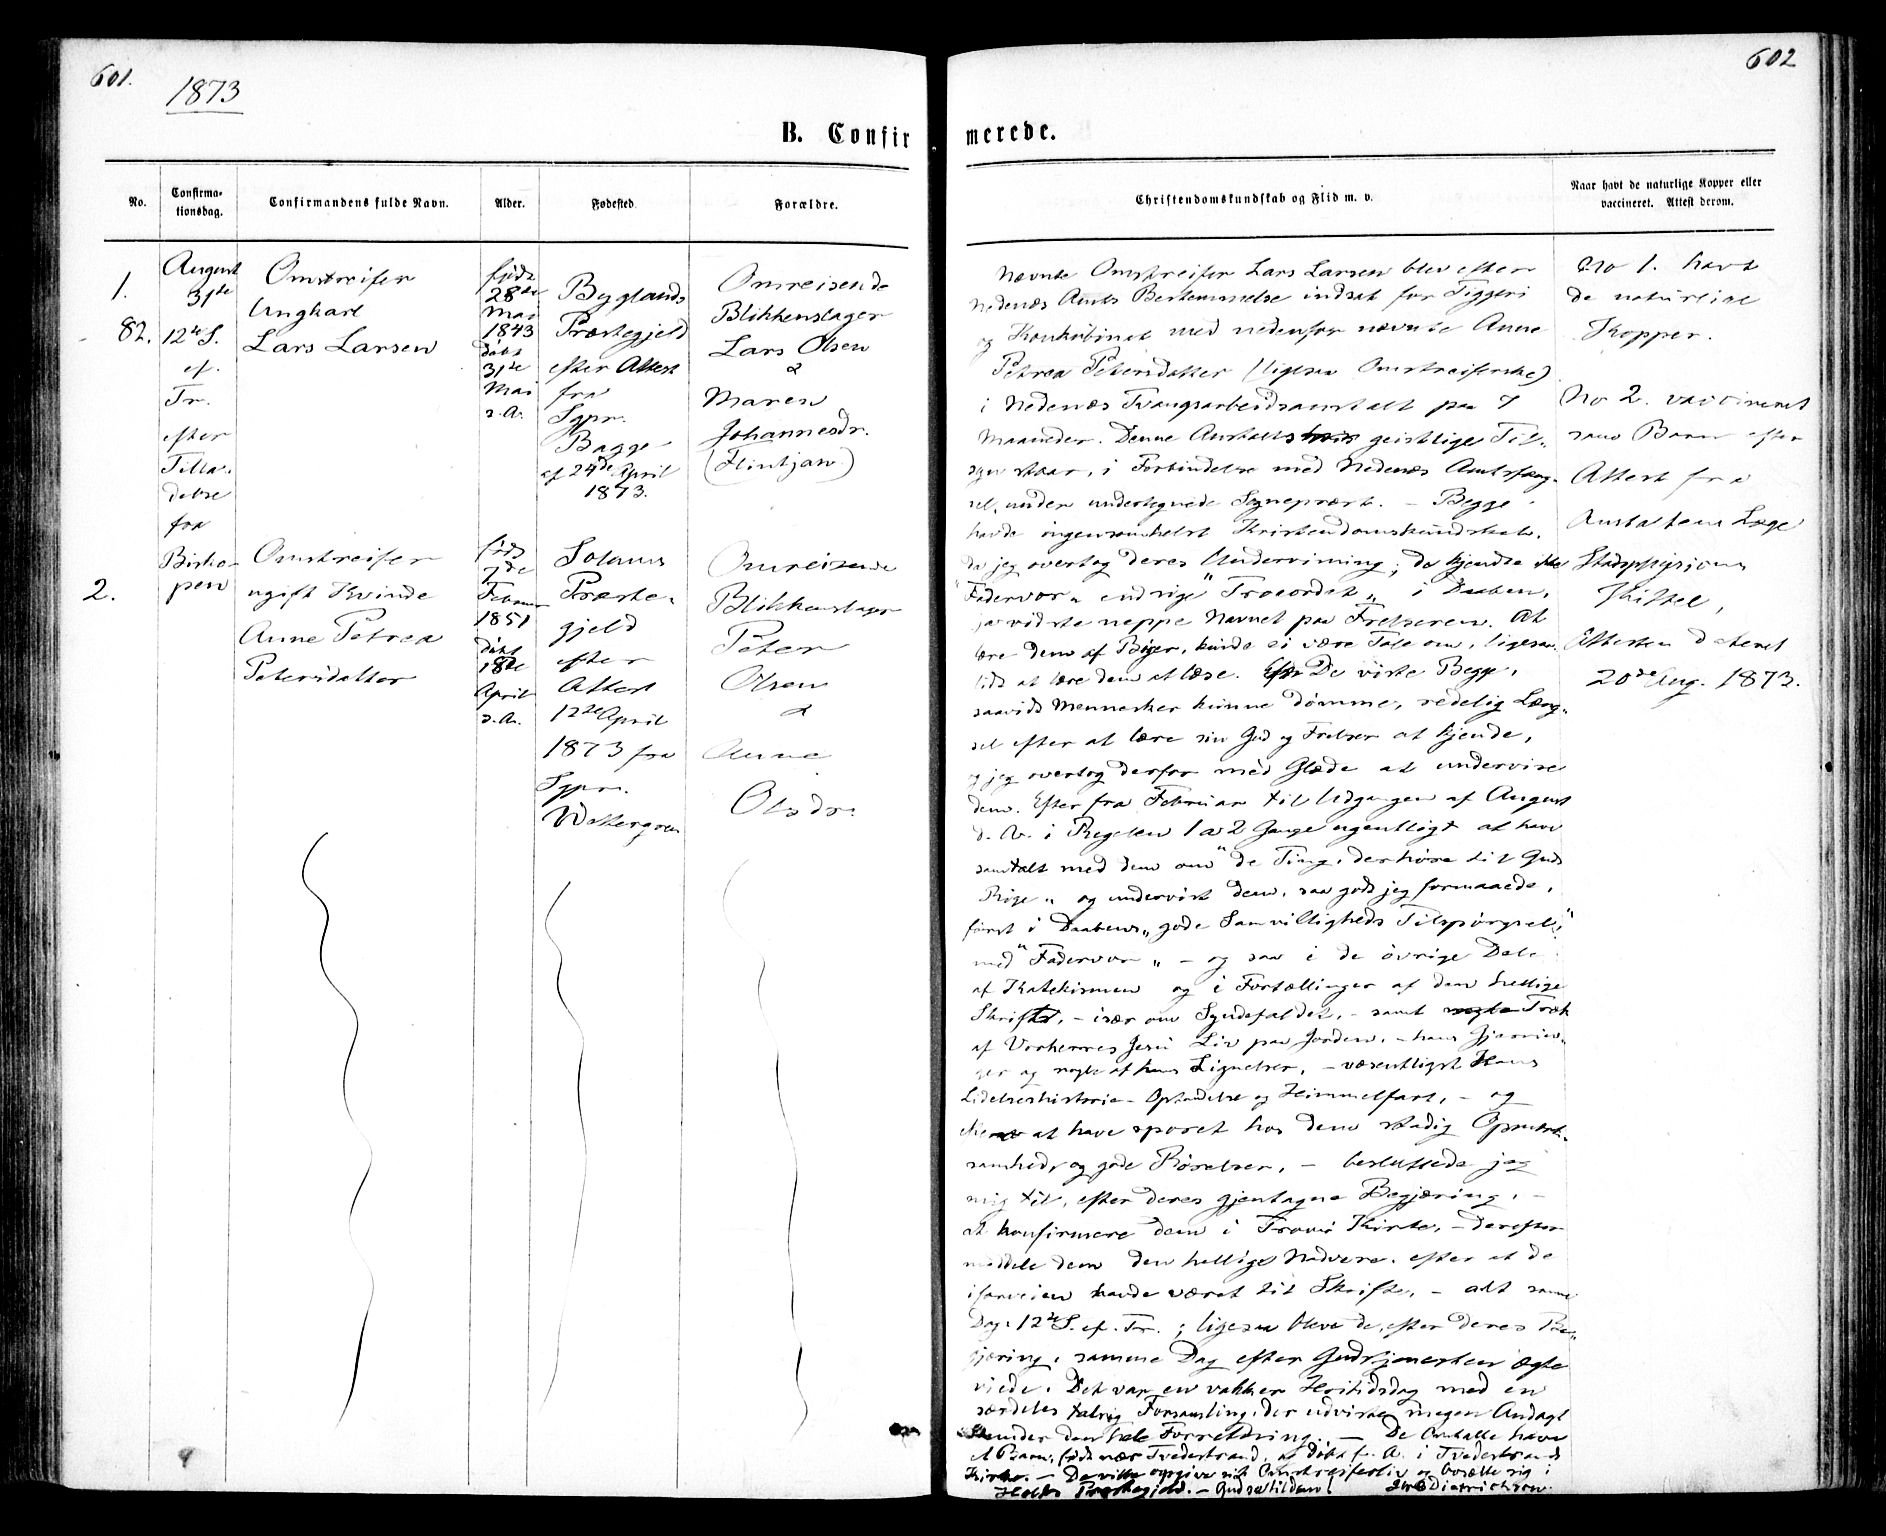 601.
1873
B. Confir
No.
Confirma-
tionsdag.
Confirmandens fulde Navn.
Alder.
Fødested.
Forældre.
1.
82.
August
31te
12te S.
ef.
Tr.
efter
Tilla-
delse
fra
Bisko-
pen
Omstreifer
Ungkarl
Lars Larsen
født
28de
Mai
1843
døbt
31te
Mai
s. A.
Byglands
Præstegjeld
efter Attest
fra
Sgpr.
Bagge
af 24de April
1873.
Omreisende
Blikkenslager
Lars Olsen
&
Maren
Johannesdr.
(Flintjan)
2.
Omstreifer
ugift Kvinde
Anne Petrea
Petersdatter
født
7de
Februar
1851
døbt
18de
April
s. A.
Solums
Præste-
gjeld
efter
Attest
12te April
1873 fra
Sgpr.
Omreisende
Blikkenslager
Peter
Olsen
&
Anne
Olsdr.
602
merede.
Christendomskundskab og Flid m. v.
Naar havt de naturlige Kopper eller
vaccineret. Attest derom.
Nævnte Omstreifer Lars Larsen blev efter
Nedenæs Amts Bestemmelse indsat for Tiggeri
og Konkubinat med nedenfor nævnte Anne
Petrea Petersdatter (ligesaa Omstreiferske)
i Nedenæs Tvangsarbeidsanstalt paa 7
Maaneder. Denne Anstalts geistlige Til-
syn staar, i Forbindelse med Nedenæs Amtsfæng-
sel, under undertegnede Sognepræst. – Begge
havde ingensomhelst Kristendomskundskab,
da jeg overtog deres Undervisning; de kjendte ikke
"Fadervor" endsige "Troesordet" i Daaben,
ja vidste neppe Navnet paa Frelseren. At
lære dem af Bøger, kunde ei være Tale om, ligesaa
lidt at lære dem at læse. De viste Begge,
saavidt Mennesker kunne dømme, redelig Læng-
sel efter at lære sin Gud og Frelser at kjende,
og jeg overtog derfor med Glæde at undervise
dem. Efter fra Februar til Udgangen af August
d. A. i Regelen 1 a 2 Gange ugentligt at have
samtalt med dem om "de Ting, der høre til Guds
Rige" og undervist dem, saa godt jeg formaaede,
først i Daabens "gode Samvittigheds Tilspørgsel"
med "Fadervor" – og saa i de øvrige Dele
af Katekismen og i Fortællinger af den hellige
Skrift, – især om Syndefaldet, – samt Træk
af Vorherres Jesu Liv paa Jorden, – hans Gjernin-
ger og nogle af hans Lignelser, – væsentligst Hans
Lidelseshistorie – Opstandelse og Himmelfart, – og
at have sporet hos dem stadig Opmærk-
somhed, og gode Rørelser, – besluttede jeg
mig til, efter deres gjentagne Begjæring, –
at konfirmere dem i Tromø Kirke, – derefter
meddele dem den hellige Nadvere, efter at de
iforveien havde været til Skrifte, – alt samme
Dag, 12te S. ef. Tr.; ligesaa bleve de, efter deres Be-
gjæring, samme Dag efter Gudstjenesten ægte-
viede. Det var en vakker Høitidsdag med en
særdeles talrig Forsamling, der udviste megen Andagt
under den hele Forretning. – De Omtalte have
et Barn, født nær Tvedestrand, og døbt f. A. i Tvedestrands
Kirke. – De ville opgive sit Omstreiferliv og bosætte sig i
Holts Præstegjeld. – Gud se til dem! Dietrichson.
No 1. havt
de naturlige
Kopper.
No 2. vaccineret
som Barn efter
Attest fra
Anstaltens Læge
Stadsphysicus
Kittel,
Attesten dateret
20de Aug. 1873.